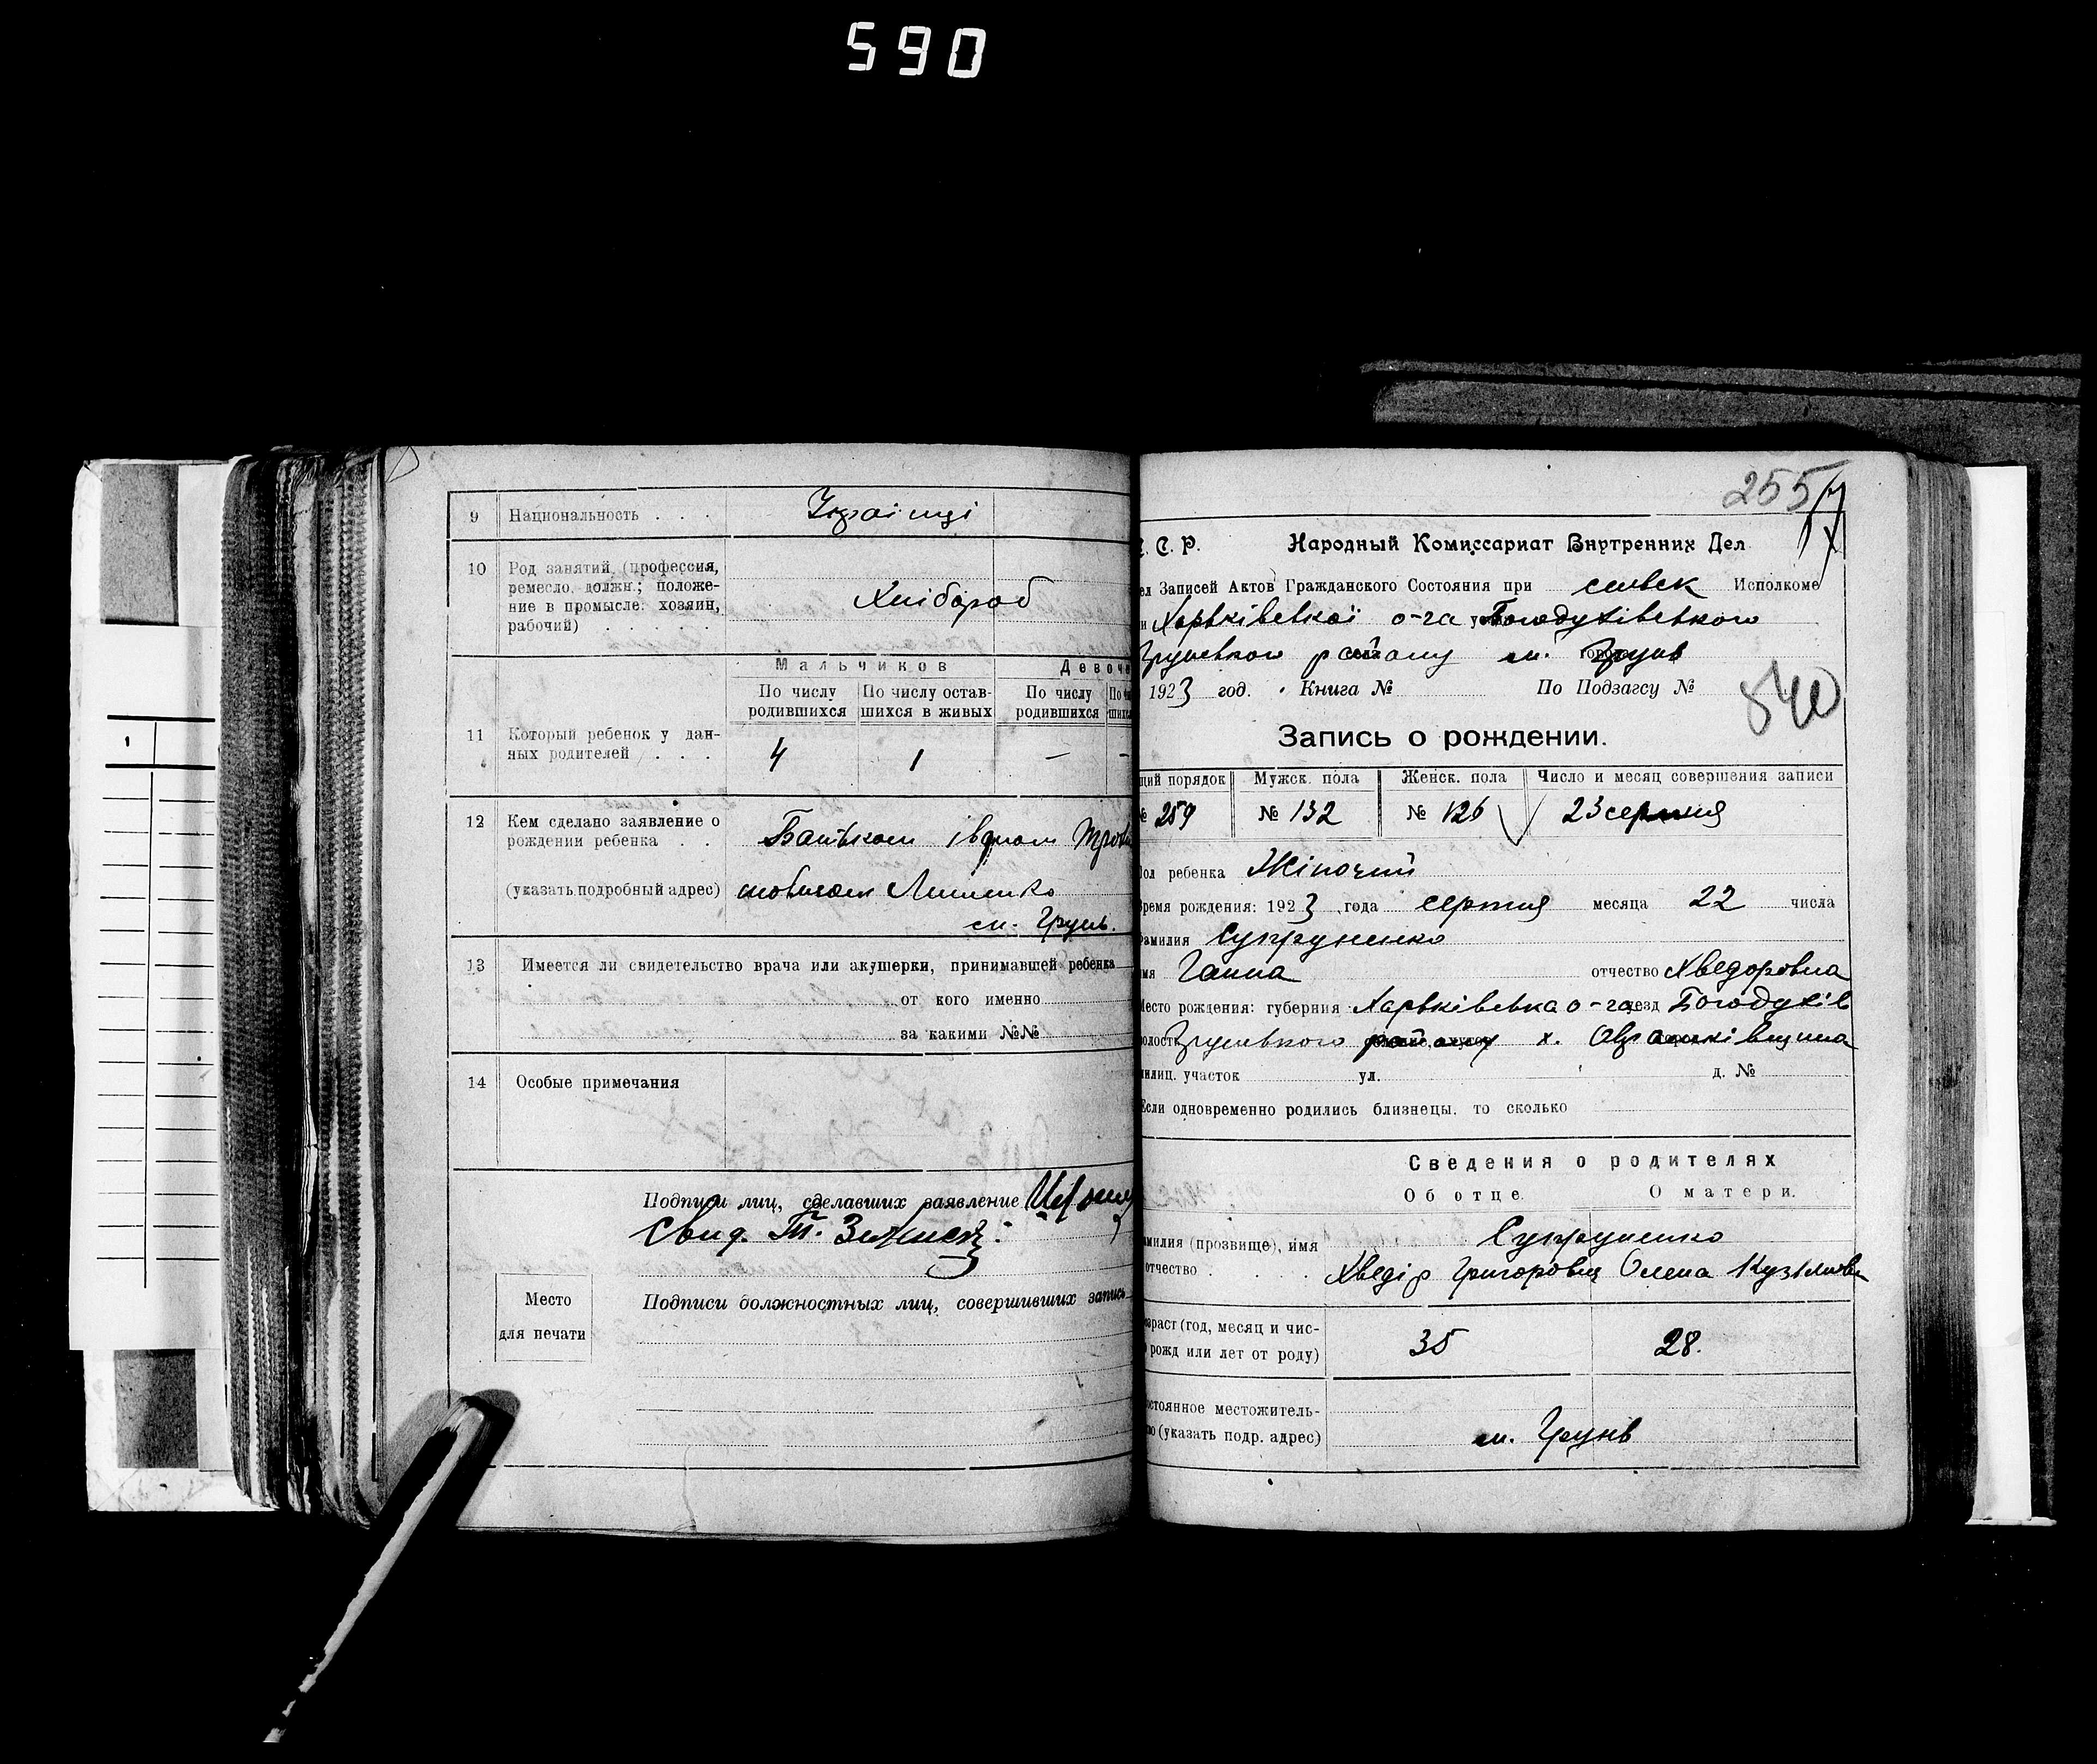 590
9 Национальность . . . Украінці
10 Род занятий (профессия, ремесло, должн.; положение в промысле: хозяин, рабочий) . . . . . Хлібороб
Мальчиков Девоч
По числу родившихся По числу оставшихся в живых По числу родившихся
11 Который ребенок у данных родителей . . . 4 1 — —
12 Кем сделано заявление о рождении ребенка . . Батьком
(указать подробный адрес)
сл. Грунь.
13 Имеется ли свидетельство врача или акушерки, принимавшей ребенка
от кого именно
за какими №№
14 Особые примечания
Подписи лиц, сделавших заявление
Свид.
Место для печати
Подписи должностных лиц, совершивших запись
255
С. Р. Народный Комиссариат Внутренних Дел
Записей Актов Гражданского Состояния при Исполкоме
Харьківськоі о-га Богодухівського
району Грунь
1923 год. Книга № По Подзагсу №
840
Запись о рождении.
порядок Мужск. пола Женск. пола Число и месяц совершения записи
№ 259 № 132 № 126 23 серпня
ребенка Жіночий
рождения: 1923 года серпня месяца 22 числа
Супруненко
Ганна отчество Хведоровна
Место рождения: губерния Харьківська о-га Богодухів
району х.
участок ул. д. №
Если одновременно родились близнецы, то сколько
Сведения о родителях
Об отце. О матери.
(прозвище), имя отчество . . . . Супруненко
Хведір Григоровіч Олена
(год, месяц и рожд или лет от роду) 35 28.
(указать подр. адрес) Грунь